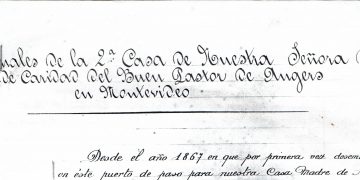 nales de la 2.ª Casa de Nuestra Señora
de Caridad del Buen Pastor de Angers
en Montevideo
Desde el año 1867 en que por primera vez
en éste puerto de paso para nuestra Casa Madre de